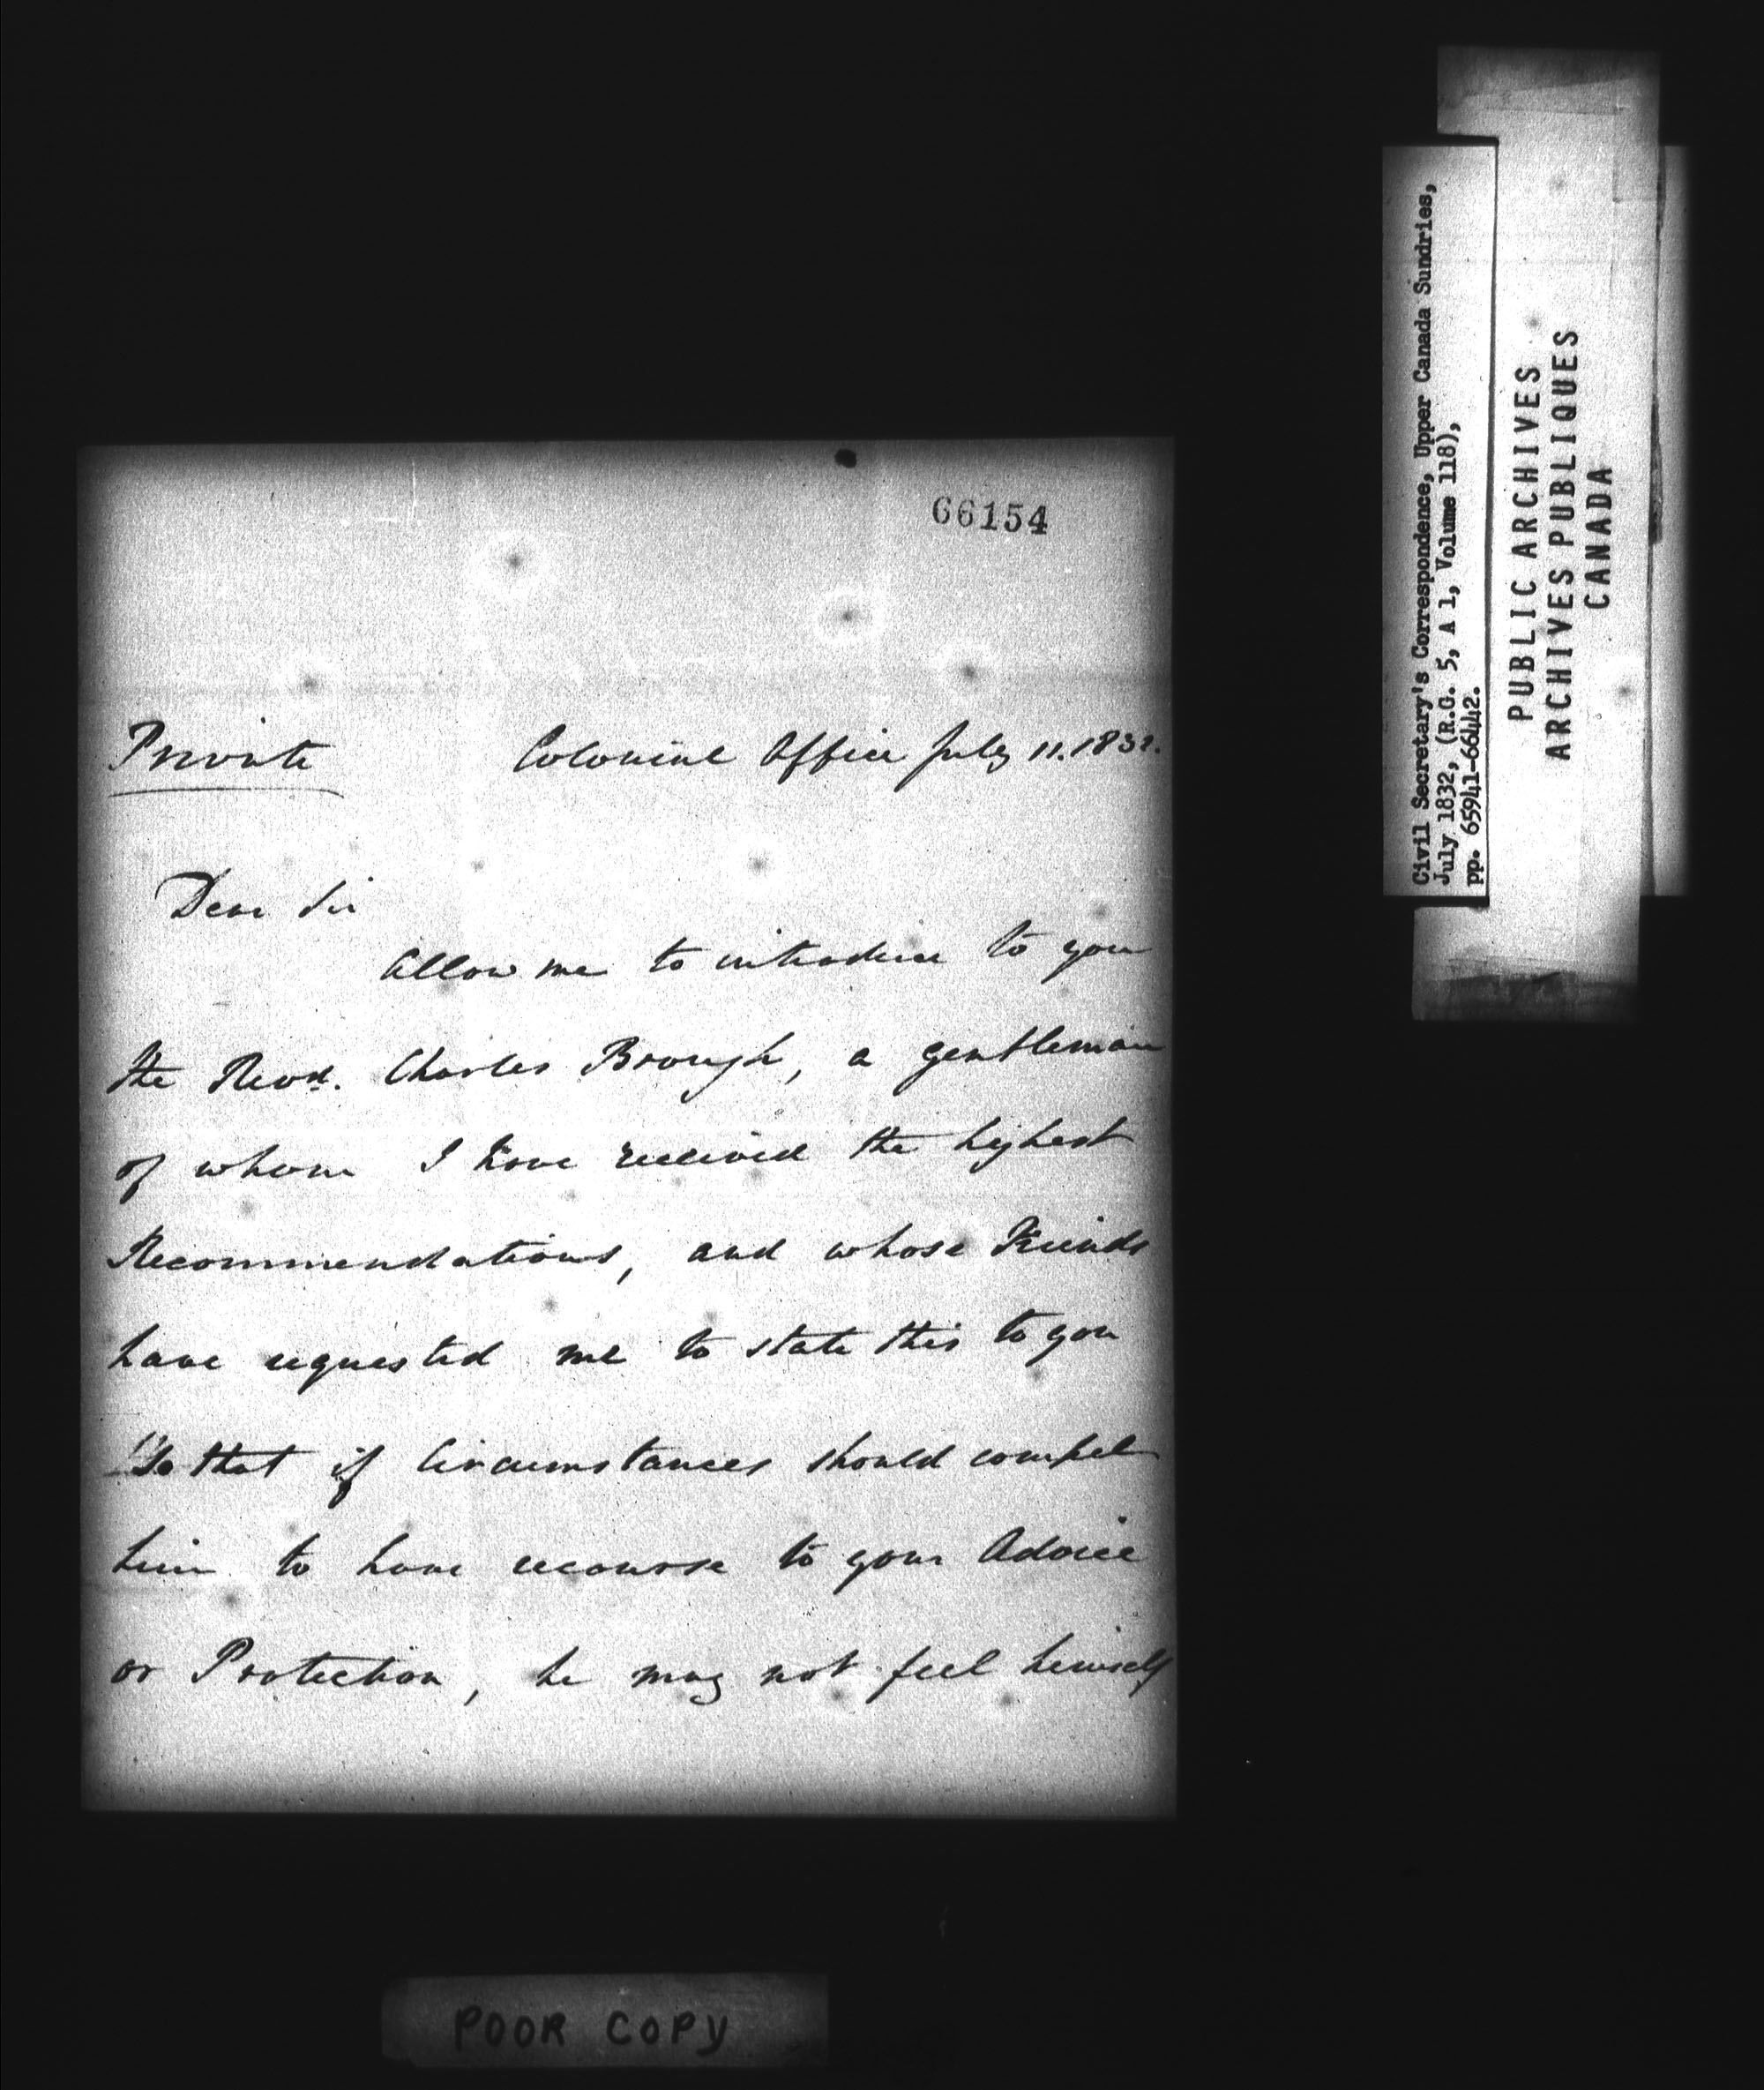 66154
Private Colonial Office July 11. 1832.
Dear Sir
Allow me to introduce to you
the Revd. Charles Brough, a gentleman
of whom I have received the highest
Recommendations, and whose Friends
have requested me to state this to you
So that if Circumstances should compel
him to have recourse to your Advice
or Protection, he may not feel himself
POOR COPY
Civil Secretary's Correspondence, Upper Canada Sundries,
July 1832, (R.G. 5, A 1, Volume 118),
pp. 65941-66442.
PUBLIC ARCHIVES
ARCHIVES PUBLIQUES
CANADA